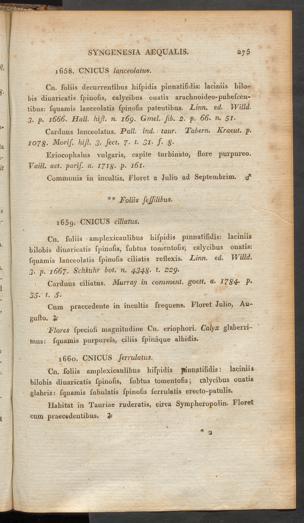 SYNGENESIA AEQUALIS. 275
1658. CNICUS lanceolatus.
Cn. foliis decurrentibus hiſpidis pinnatifidis: laciniis bilo-
bis diuaricatis ſpinoſis, calycibus ouatis arachnoideo-pubeſcen-
tibus: ſquamis lanceolatis ſpinoſis patentibus. Linn. ed. Willd.
3. p. 1666. Hall. hiſt. n. 169. Gmel. ſib. 2. p. 66. n. 51.
Carduus lanceolatus. Pall. ind. taur. Tabern. Kraeut. p.
1078. Moriſ. hiſt. 3. ſect. 7. t. 31. f. 8.
Eriocephalus vulgaris, capite turbinato, flore purpureo.
Vaill. act. pariſ. a. 1718. p. 161.
Communis in incultis. Floret a Julio ad Septembrim. ♂
** Foliis ſeſſilibus.
1659. CNICUS ciliatus.
Cn. foliis amplexicaulibus hiſpidis pinnatifidis: laciniis
bilobis diuaricatis ſpinoſis, ſubtus tomentoſis; calycibus ouatis:
ſquamis lanceolatis ſpinoſis ciliatis reflexis. Linn. ed. Willd.
3. p. 1667. Schkuhr bot. n. 4348. t. 229.
Carduus ciliatus. Murray in comment. goett. a. 1784. p.
35. t. 5.
Cum praecedente in incultis frequens. Floret Julio, Au-
guſto. ♃
Flores ſpecioſi magnitudine Cn. eriophori. Calyx glaberri-
mus: ſquamis purpureis, ciliis ſpinisque albidis.
1660. CNICUS ſerrulatus.
Cn. foliis amplexicaulibus hiſpidis pinnatifidis: laciniis
bilobis diuaricatis ſpinoſis, ſubtus tomentoſis; calycibus ouatis
glabris: ſquamis ſubulatis ſpinoſis ſerrulatis erecto-patulis.
Habitat in Tauriae ruderatis, circa Sympheropolin. Floret
cum praecedentibus. ♃
* 2